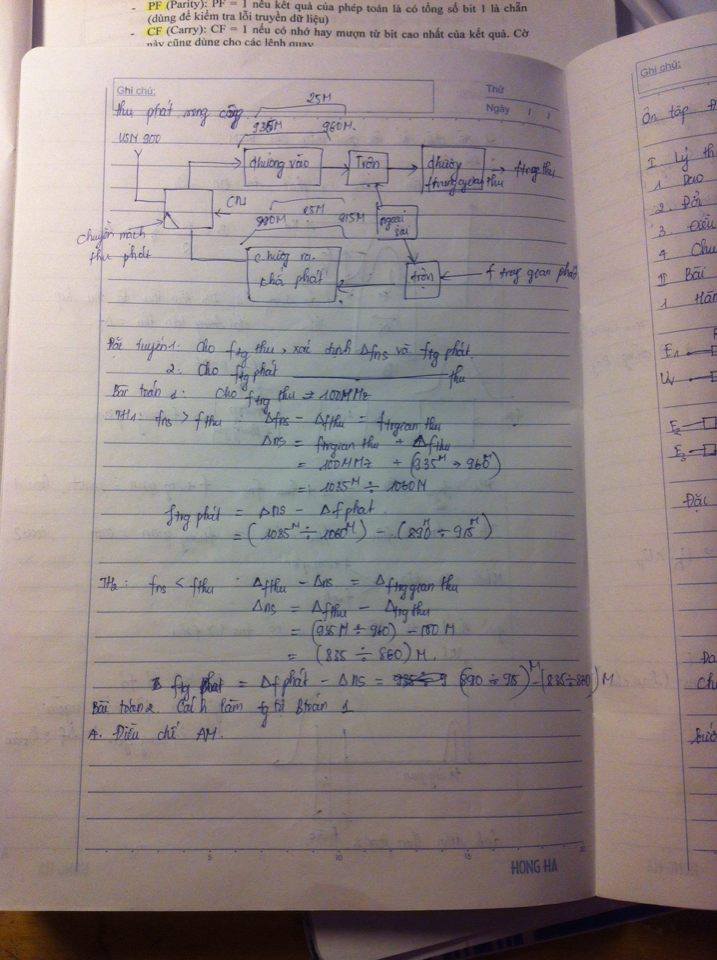 - PF (Parity): PF = 1 nếu kết quả của phép toán là có tổng số bit 1 là chẵn
(dùng để kiểm tra lỗi truyền dữ liệu)
- CF (Carry): CF = 1 nếu có nhớ hay mượn từ bit cao nhất của kết quả. Cờ
này cũng dùng cho các lệnh quay
Ghi chú:
Thứ
Ngày / /
25M
thu phát song công
935M 960M
900
đường vào
Trộn
đường
f trung gian thu
f trg thu
chuyển mạch
thu phát
25M
890M 915M
ngoại
sai
đường ra
khá phát
trộn
f trg gian phát
1. Cho ftg thu, xác định Δfns và ftg phát.
2. Cho ftg phát thu
Bài toán 1: Cho ftg thu = 100MHz
TH1: fns > fthu : Δfns - Δfthu = ftrgian thu
Δns = ftrgian thu + Δfthu
= 100MHz + (935M → 960M)
= 1035M ÷ 1060M
ftrg phát = Δns - Δfphat
= (1035M ÷ 1060M) - (890M ÷ 915M)
TH2: fns < fthu : Δfthu - Δns = Δftrg gian thu
Δns = Δfthu - Δtrg thu
= (935M ÷ 960) - 100M
= (835 ÷ 860) M.
ftg phát = Δfphát - Δns = (890 ÷ 915)M - (835÷860) M
Bài toán 2. Cách làm tg tự Btoán 1
4. Điều chế AM.
5 10 15
HONG HA
Ghi chú:
Ôn tập
I Lý th
1. Dao
2. Đổi
3. Điều
4 Chu
II Bài
1 Hàn
E1
Uv
E2
E3
Đặc